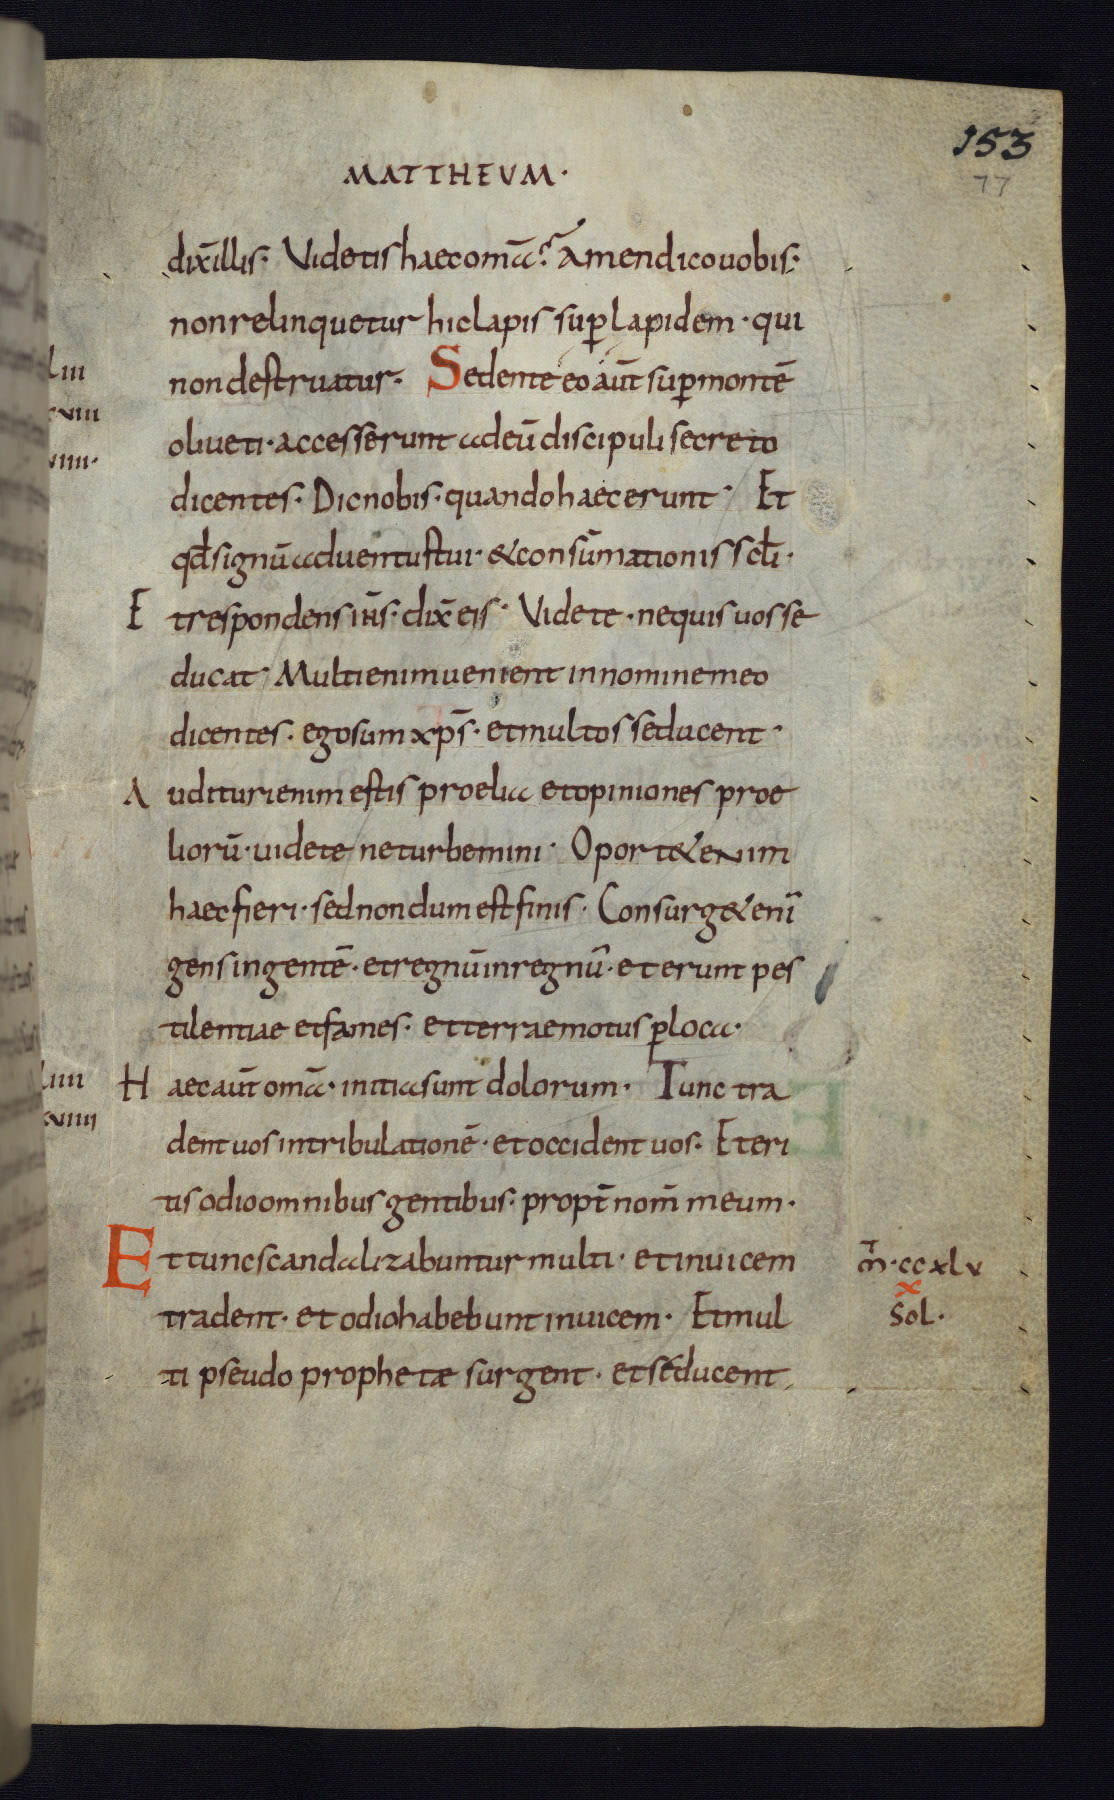 153
77
MATTHEUM·
dix̄ illis· Videtis haec om̄a? Amen dico uobis·
non relinquetur hic lapis sup̄ lapidem· qui
non destruatur· Sedente eo aūt sup̄ montē
oliueti· accesserunt ad eū discipuli secreto
dicentes· Dic nobis· quando haec erunt· Et
qd̄ signū aduentus tui· & consūmationis scl̄i·
Et respondens ih̄s· dix̄ eis· Videte· ne quis uos se
ducat· Multi enim uenient in nomine meo
dicentes· ego sum xp̄s· et multos seducent·
Audituri enim estis proelia et opiniones proe
liorū· uidete ne turbemini· Oport& enim
haec fieri· sed nondum est finis· Consurg& enī
gens in gentē· et regnū in regnū· et erunt pes
tilentiae et fames· et terraemotus p̄ loca·
Haec aūt om̄a· initia sunt dolorum· Tunc tra
dent uos in tribulationē· et occident uos· Et eri
tis odio omnibus gentibus· propt̄ nom̄ meum·
Et tunc scandalizabuntur multi· et inuicem
tradent· et odio habebunt inuicem· Et mul
ti pseudo prophetæ surgent· et seducent
m̄t·ccxlv
x
Sol·